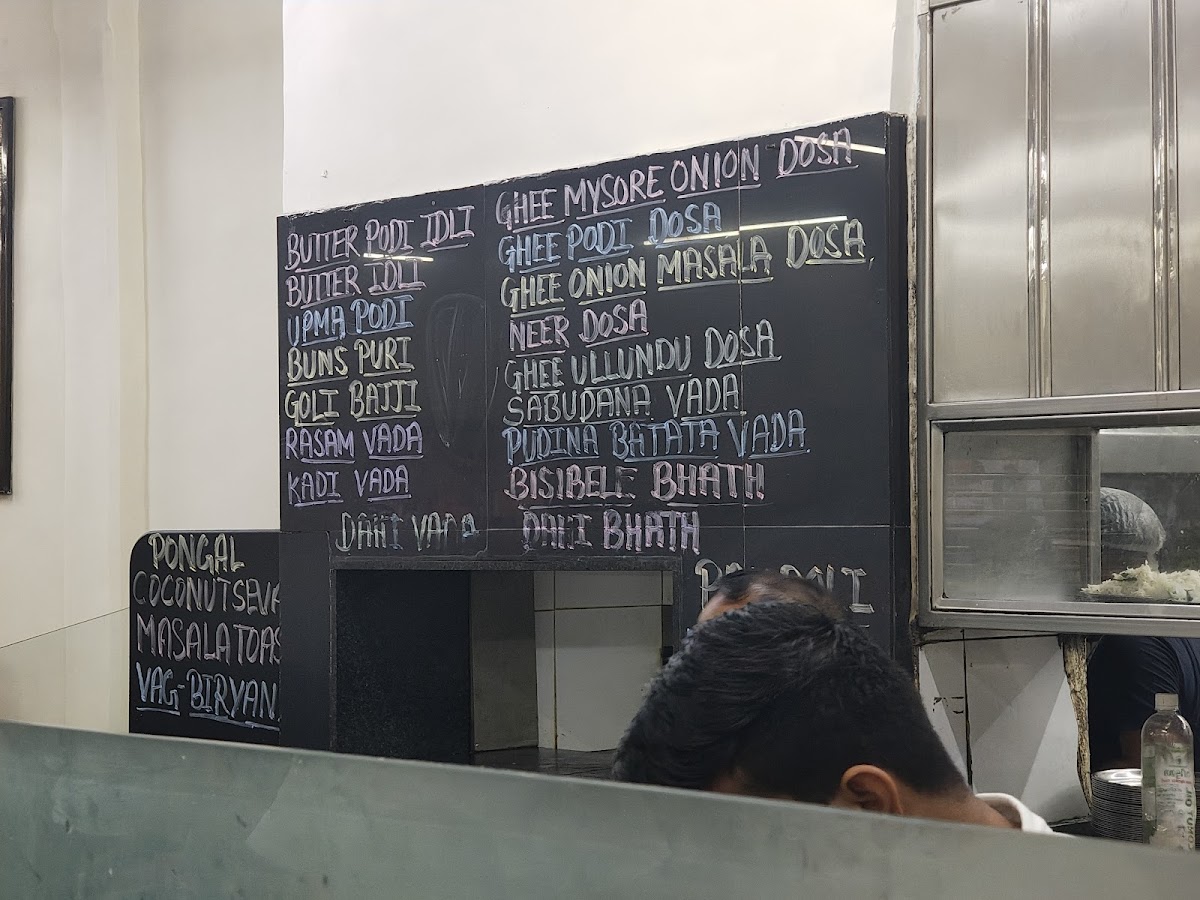 BUTTER PODI IDLI
BUTTER IDLI
UPMA PODI
BUNS PURI
GOLI BAJJI
RASAM VADA
KADI VADA
DAHI VADA
GHEE MYSORE ONION DOSA
GHEE PODI DOSA
GHEE ONION MASALA DOSA
NEER DOSA
GHEE ULLUNDU DOSA
SABUDANA VADA
PUDINA BATATA VADA
BISIBELE BHATH
DAHI BHATH
PONGAL
COCONUT SEVA
MASALA TOAS
VAG-BIRYAN